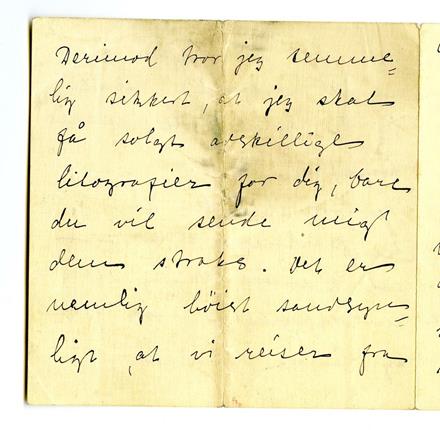 Derimod tror jeg temme=
lig sikkert, at jeg skal
få solgt adskillige
litografier for dig, bare
du vil sende migt
dem straks. Det er
nemlig høist sandsyn=
ligt, at vi reiser fra